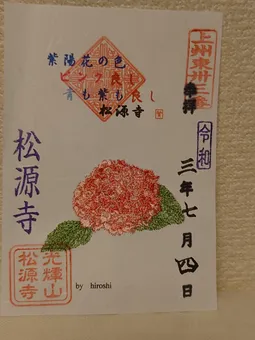 上州東卅三番
奉拝
令和
三年七月四日
紫陽花の色
ピンク良し
青も紫も良し
松源寺
松源寺
光輝山
松源寺
by hiroshi